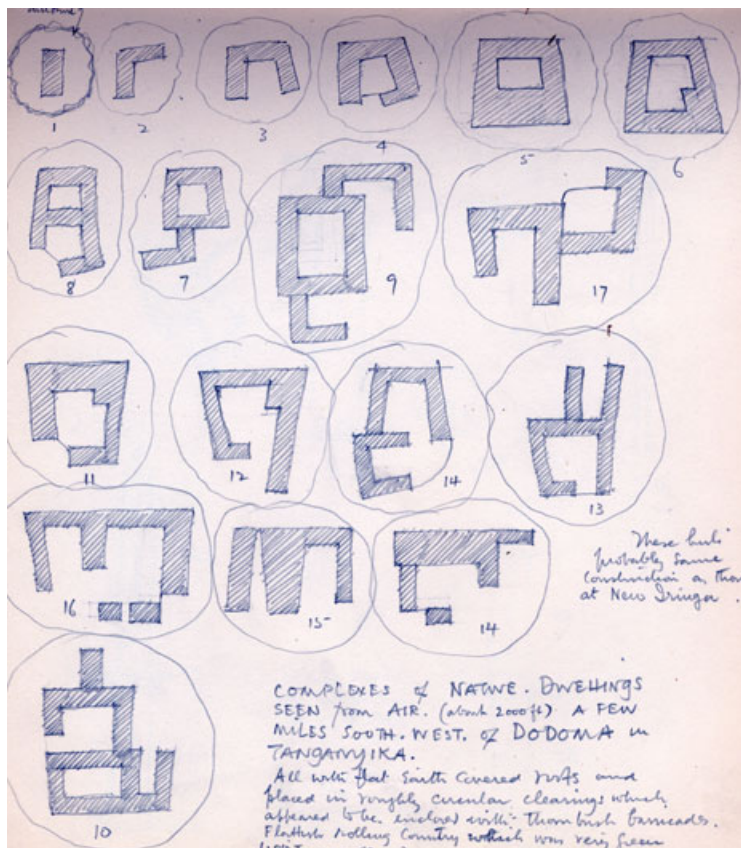 1
2
3
4
5
6
8
7
9
17
11
12
14
13
16
15
14
10
These huts
probably same
construction as those
at New Iringa.
COMPLEXES of NATIVE. DWELLINGS
SEEN from AIR. (about 2000ft) A FEW
MILES SOUTH. WEST. of DODOMA in
TANGANYIKA.
All with flat Earth Covered roofs and
placed in roughly circular clearings which
appeared to be enclosed with thornbush barricades.
Flattish rolling Country which was very green